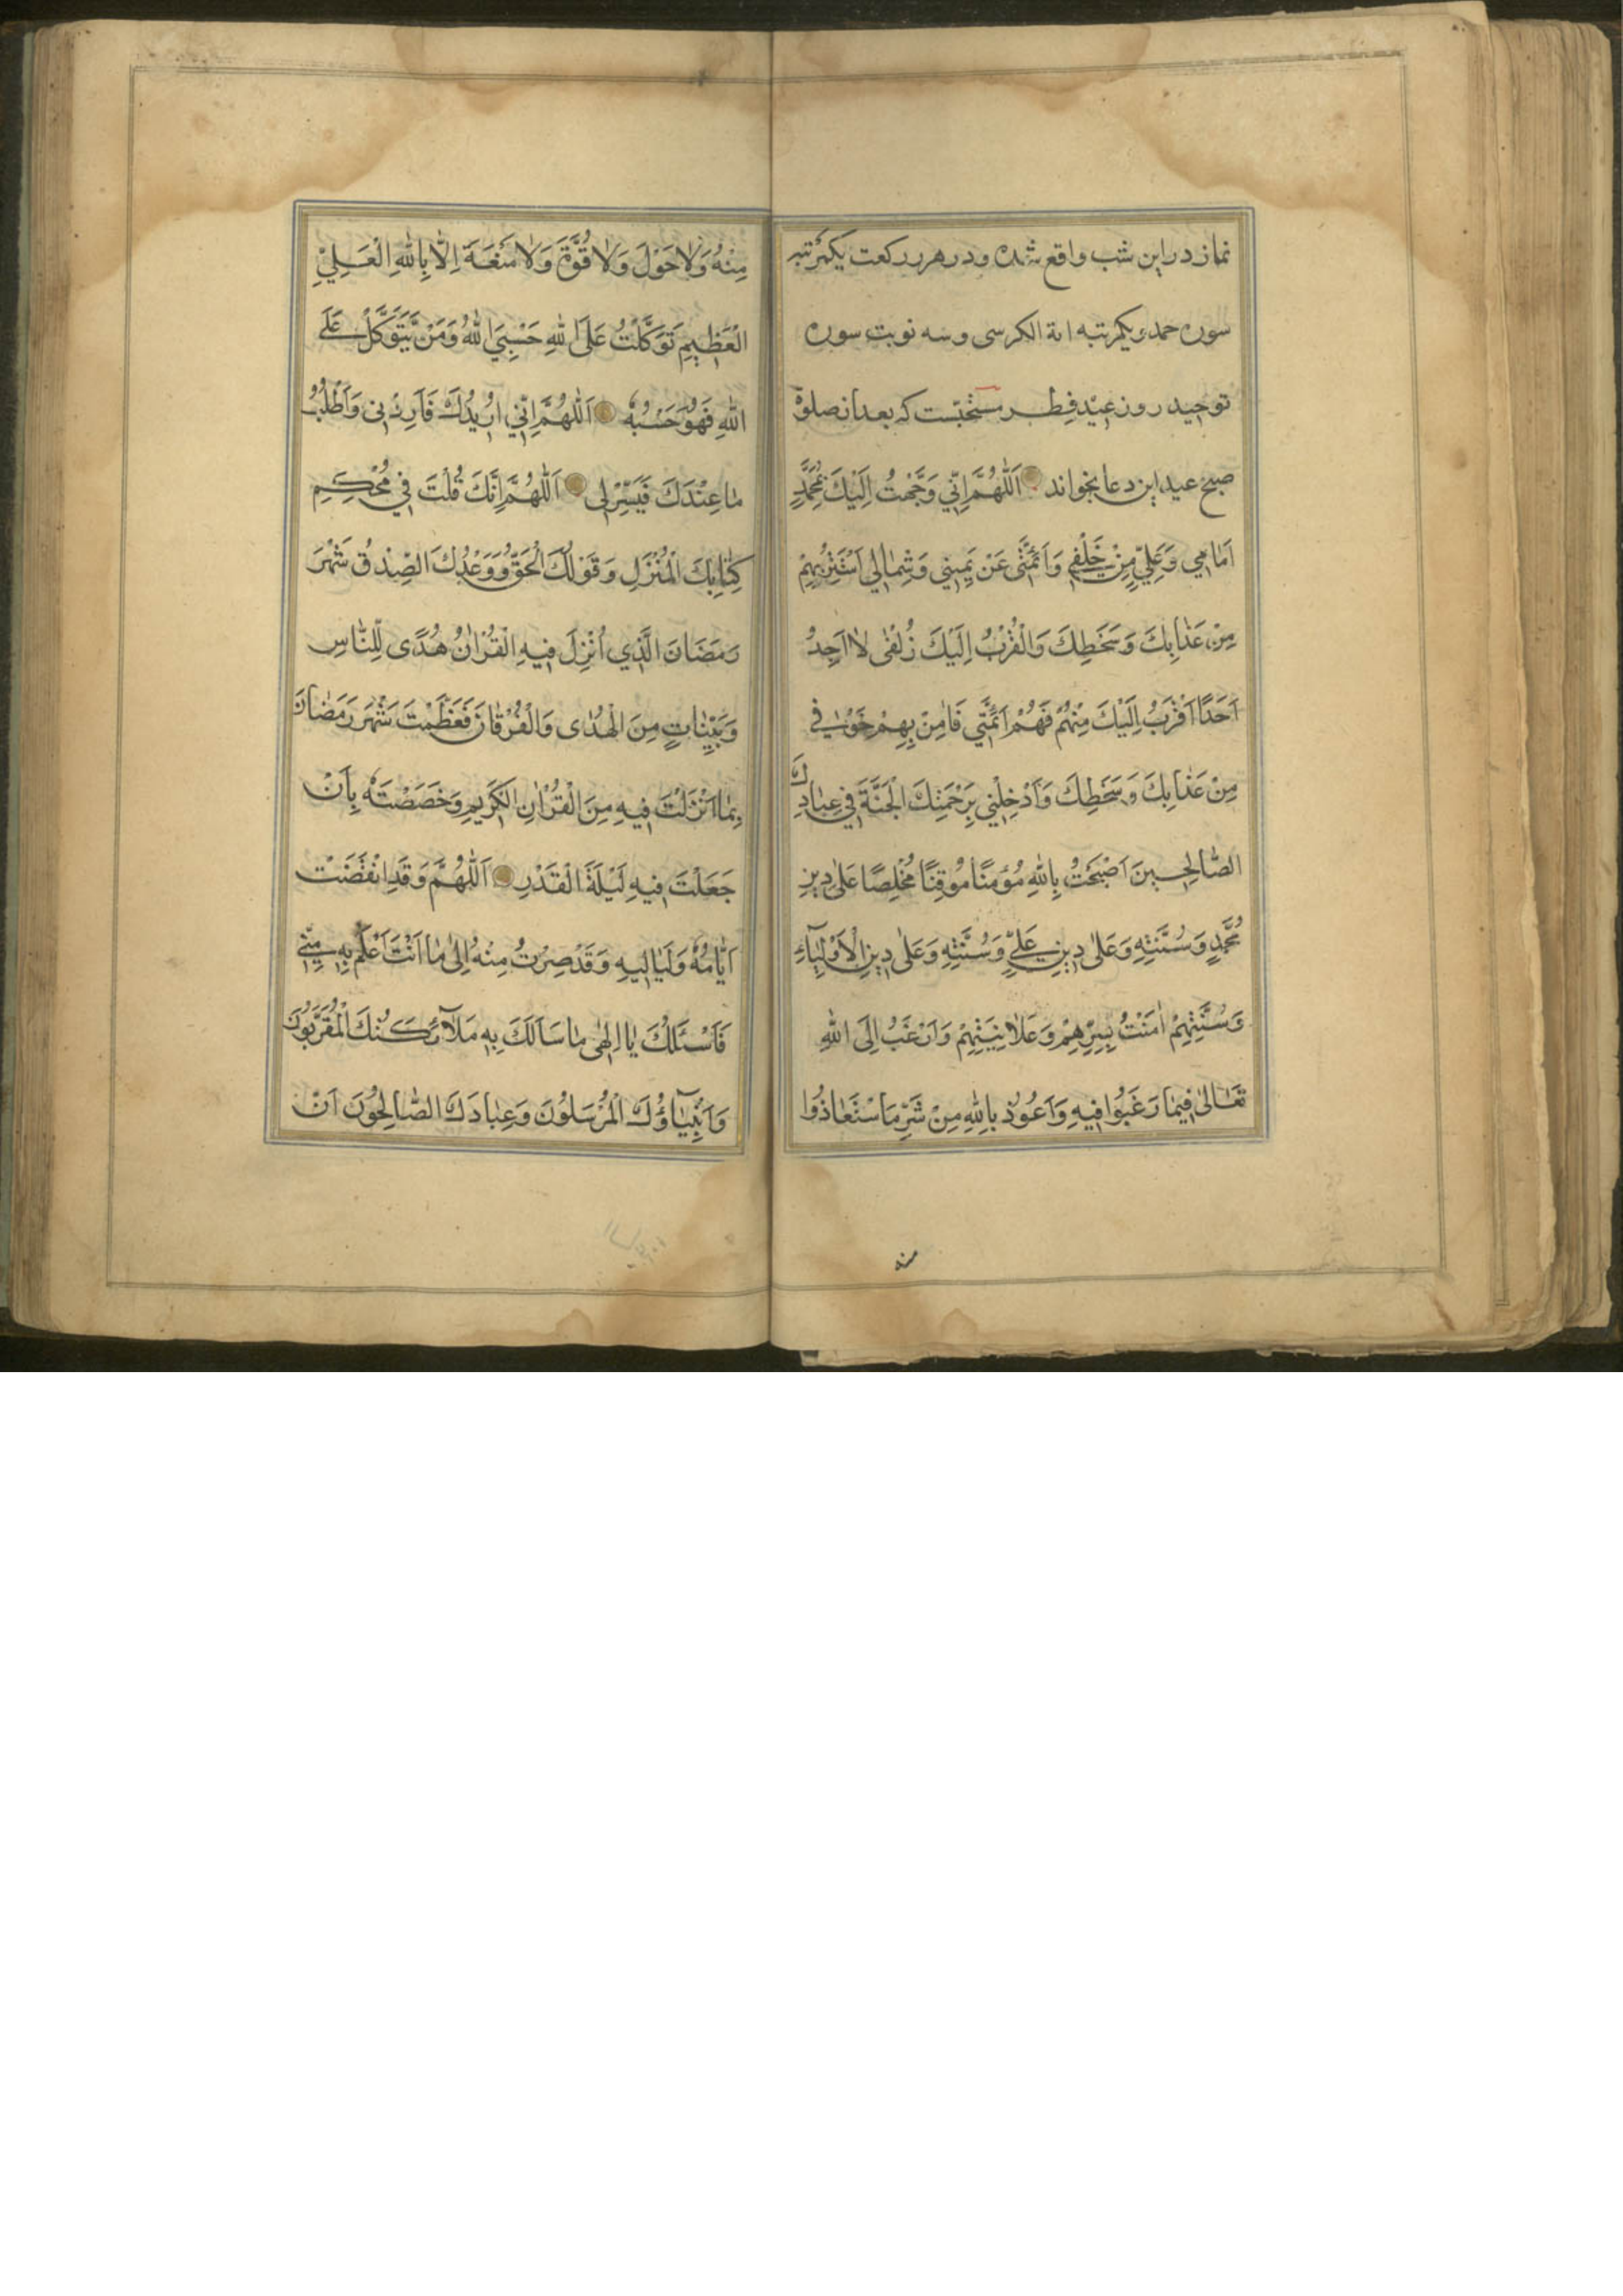 نماز در این شب واقع شده و در هر رکعت یکمرتبه
سوره حمد و یکمرتبه ایة الکرسی و سه نوبت سوره
توحید روز عید فِطر مستحبّست که بعد از صلوة
صبح عید این دعا بخواند اَللّٰهُمَّ اِنّي وَجَّهْتُ اِلَيْكَ بِمُحَمَّدٍ
اَمَامِي وَعَلِيٍّ مِنْ خَلْفِي وَاَئِمَّتِي عَنْ يَمِيني وَشِمٰالي اَسْتَتِرُ بِهِمْ
مِنْ عَذٰابِكَ وَسَخَطِكَ وَالْقُرْبُ اِلَيْكَ زُلْفٰى لاٰ اَجِدُ
اَحَدًا اَقْرَبُ اِلَيْكَ مِنْهُمْ فَهُمْ اَئِمَّتِي فَاٰمِنْ بِهِمْ خَوْفِي
مِنْ عَذٰابِكَ وَسَخَطِكَ وَاَدْخِلْنِي بِرَحْمَتِكَ الْجَنَّةَ فِي عِبٰادِكَ
الصّٰالِحِينَ اَصْبَحْتُ بِاللّٰهِ مُؤْمِنًا مُوْقِنًا مُخْلِصًا عَلٰى دِينِ
مُحَمَّدٍ وَسُنَّتِهِ وَعَلٰى دِينِ عَلِيٍّ وَسُنَّتِهِ وَعَلٰى دِينِ الْاَوْلِيٰآءِ
وَسُنَّتِهِمْ اٰمَنْتُ بِسِرِّهِمْ وَعَلاٰنِيَتِهِمْ وَاَرْغَبُ اِلَى اللّٰهِ
تَعٰالٰى فِيمٰا رَغَبُوا فِيهِ وَاَعُوذُ بِاللّٰهِ مِنْ شَرِّ مَا سْتَعٰاذُوا
منه
مِنْهُ وَلاٰ حَوْلَ وَلاٰ قُوَّةَ وَلاٰ مَنَعَةَ اِلّاٰ بِاللّٰهِ الْعَلِيِّ
الْعَظِيمِ تَوَكَّلْتُ عَلَى اللّٰهِ حَسْبِيَ اللّٰهُ وَمَنْ يَتَوَكَّلْ عَلَى
اللّٰهِ فَهُوَ حَسْبُهُ اَللّٰهُمَّ اِنّي اُرِيدُكَ فَاَرِدْنِى وَاَطْلُبُ
مٰا عِنْدَكَ فَيَسِّرْ لِى اَللّٰهُمَّ اِنَّكَ قُلْتَ فِي مُحْكَمِ
كِتٰابِكَ الْمُنْزَلِ وَقَوْلُكَ الْحَقُّ وَوَعْدُكَ الصِّدْقُ شَهْرُ
رَمَضَانَ الَّذِي اُنْزِلَ فِيهِ الْقُرْاٰنُ هُدًى لِلنّٰاسِ
وَبَيِّنٰاتٍ مِنَ الْهُدٰى وَالْفُرْقٰانِ فَعَظَّمْتَ شَهْرَ رَمَضٰانَ
بِمٰا اَنْزَلْتَ فِيهِ مِنَ الْقُرْاٰنِ الْكَرِيمِ وَخَصَصْتَهُ بِاَنْ
جَعَلْتَ فِيهِ لَيْلَةَ الْقَدْرِ اَللّٰهُمَّ وَقَدِ انْقَضَتْ
اَيّٰامُهُ وَلَيٰالِيهِ وَقَدْ صِرْتُ مِنْهُ اِلٰى مٰا اَنْتَ اَعْلَمُ بِهِ مِنِّي
فَاَسْئَلُكَ يٰا اِلٰهِى مٰا سَاَلَكَ بِهِ مَلاٰئِكَتُكَ الْمُقَرَّبُونَ
وَاَنْبِيٰآؤُكَ الْمُرْسَلُوْنَ وَعِبٰادُكَ الصّٰالِحُوْنَ اَنْ